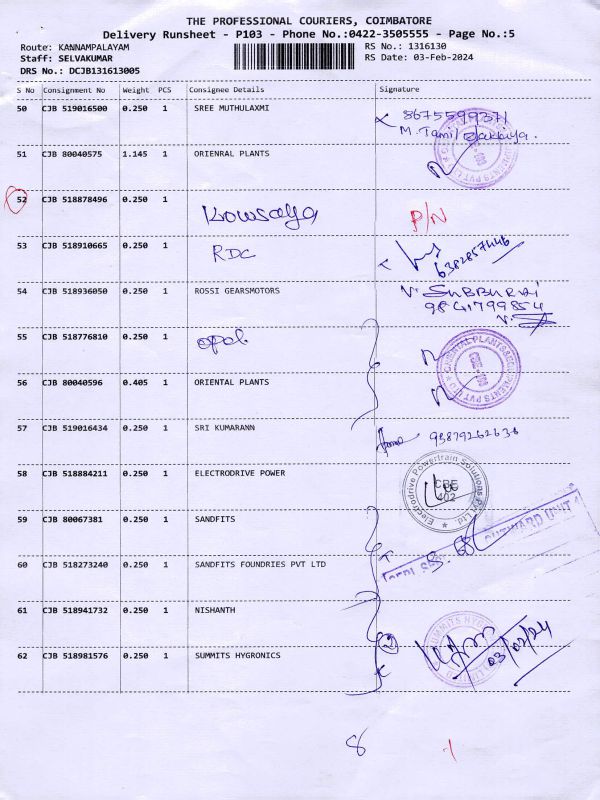 THE PROFESSIONAL COURIERS, COIMBATORE
Delivery Runsheet - P103 - Phone No.:0422-3505555 - Page No.:5
Route: KANNAMPALAYAM
RS No.: 1316130
Staff: SELVAKUMAR
RS Date: 03-Feb-2024
DRS No.: DCJB131613005
S No Consignment No Weight PCS Consignee Details Signature
50 CJB 519016500 0.250 1 SREE MUTHULAXMI
8675599371
M. Tamil
51 CJB 80040575 1.145 1 ORIENRAL PLANTS
52 CJB 518878496 0.250 1
Kowsalya P/N
53 CJB 518910665 0.250 1 RDC
6382857446
54 CJB 518936050 0.250 1 ROSSI GEARSMOTORS
V. SUBBURAJ
9841799854
55 CJB 518776810 0.250 1 opal
56 CJB 80040596 0.405 1 ORIENTAL PLANTS
57 CJB 519016434 0.250 1 SRI KUMARANN
58 CJB 518884211 0.250 1 ELECTRODRIVE POWER
Electrodrive Powertrain Solutions Pvt Ltd.
CBE
402
59 CJB 80067381 0.250 1 SANDFITS
60 CJB 518273240 0.250 1 SANDFITS FOUNDRIES PVT LTD
61 CJB 518941732 0.250 1 NISHANTH
62 CJB 518981576 0.250 1 SUMMITS HYGRONICS
03/02/24
8